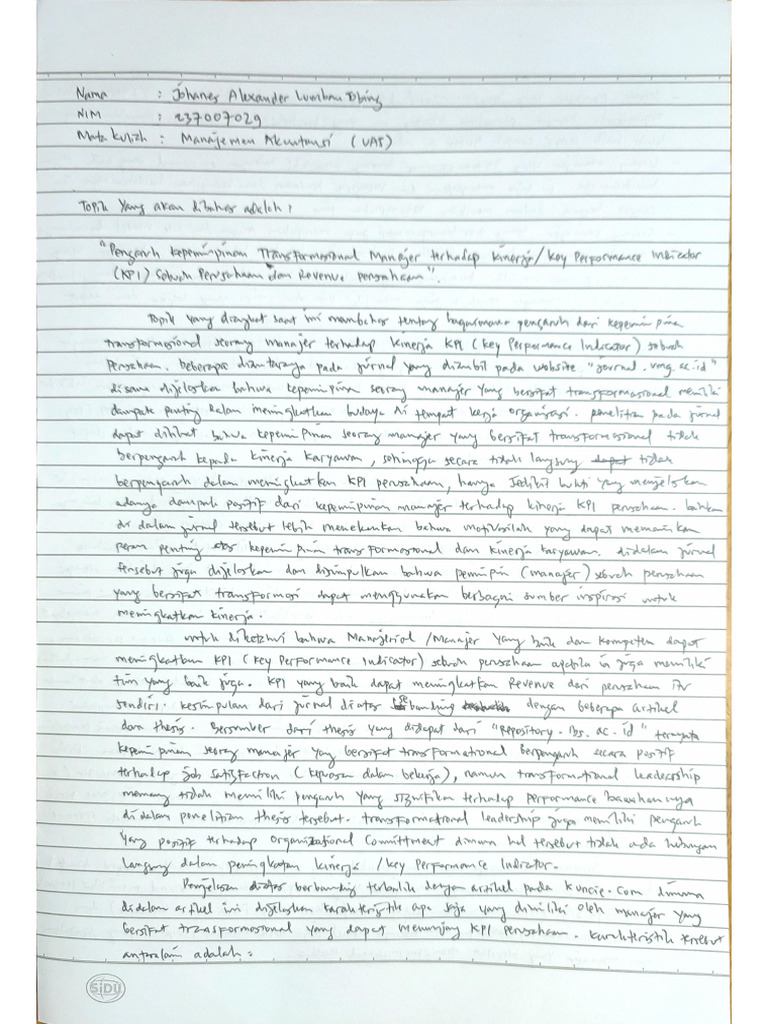 Nama : Johanes Alexander Lumban Tobing
NIM : 237007029
Mata Kuliah : Manajemen Akuntansi (UAS)
Topik yang akan dibahas adalah :
"Pengaruh kepemimpinan Transformasional Manajer terhadap kinerja/Key Performance Indicator
(KPI) Sebuah Perusahaan dan Revenue perusahaan".
Topik yang diangkat saat ini membahas tentang bagaimana pengaruh dari kepemimpinan
transformasional seorang manajer terhadap kinerja KPI (Key Performance Indicator) sebuah
Perusahaan. beberapa diantaranya pada jurnal yang diambil pada website "journal.umg.ac.id"
disana dijelaskan bahwa kepemimpinan seorang manajer yang bersifat transformasional memiliki
dampak penting dalam meningkatkan budaya di tempat kerja organisasi. penelitian pada jurnal
dapat dilihat bahwa kepemimpinan seorang manajer yang bersifat transformasional tidak
berpengaruh kepada kinerja karyawan, sehingga secara tidak langsung tidak
berpengaruh dalam meningkatkan KPI perusahaan, hanya sedikit bukti yang menjelaskan
adanya dampak positif dari kepemimpinan manajer terhadap kinerja KPI perusahaan. bahkan
di dalam jurnal tersebut lebih menekankan bahwa motivasilah yang dapat memainkan
peran penting kepemimpinan transformasional dan kinerja karyawan. didalam jurnal
tersebut juga dijelaskan dan disimpulkan bahwa pemimpin (manajer) sebuah perusahaan
yang bersifat transformasi dapat menggunakan berbagai sumber inspirasi untuk
meningkatkan kinerja.
untuk diketahui bahwa Manajerial /Manajer yang baik dan kompeten dapat
meningkatkan KPI (Key Performance Indicator) sebuah perusahaan apabila ia juga memiliki
tim yang baik juga. KPI yang baik dapat meningkatkan Revenue dari perusahaan itu
sendiri. kesimpulan dari jurnal diatas sebanding dengan beberapa artikel
dan thesis. Bersumber dari thesis yang didapat dari "repository.ibs.ac.id" ternyata
kepemimpinan seorang manajer yang bersifat transformational berpengaruh secara positif
terhadap job satisfaction (kepuasan dalam bekerja), namun transformational leadership
memang tidak memiliki pengaruh yang signifikan terhadap performance bawahannya
didalam penelitian thesis tersebut. transformational leadership juga memiliki pengaruh
yang positif terhadap organizational Committment dimana hal tersebut tidak ada hubungan
langsung dalam peningkatan kinerja /Key Performance Indicator.
Penjelasan diatas berbanding terbalik dengan artikel pada kuncie.com dimana
didalam artikel ini dijelaskan karakteristik apa saja yang dimiliki oleh manajer yang
bersifat transformasional yang dapat menunjang KPI perusahaan. karakteristik tersebut
antaralain adalah :
SiDU